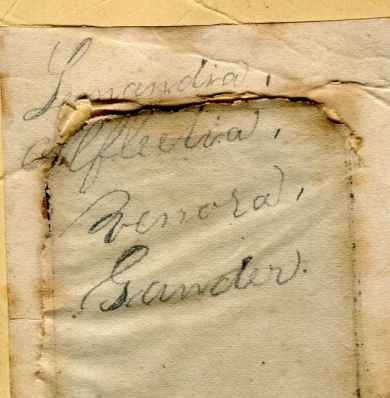 Amandia,
Alflectia,
Zenora,
Gander.